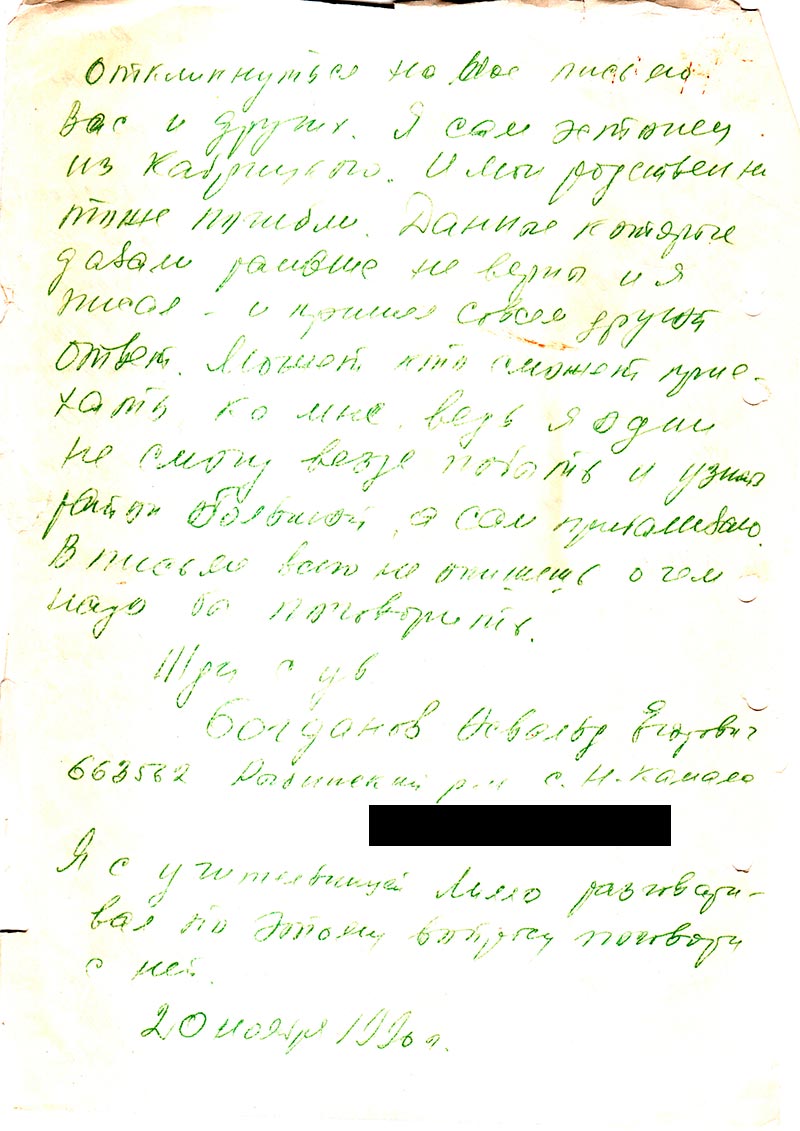 Откликнуться на Ваше письмо
Вас и других. Я сам эстонец
из Кабрицкого. И мои родственни
тоже погибли. Данные которые
давали раньше не верны и я
писал - и пришел совсем другой
ответ. Может кто сможет прие-
хать ко мне, ведь я один
не смогу везде побыть и узнать
район большой, а сам прихалываю.
В письме всего не опишешь о чем
надо бы поговорить.
Жду с ув
Богданов Освальд Егорович
663562 Рыбинский р-н с. Н-Камала
Я с учительницей разговари-
вал по этому вопросу поговори
с ней.
20 ноября 1990 г.